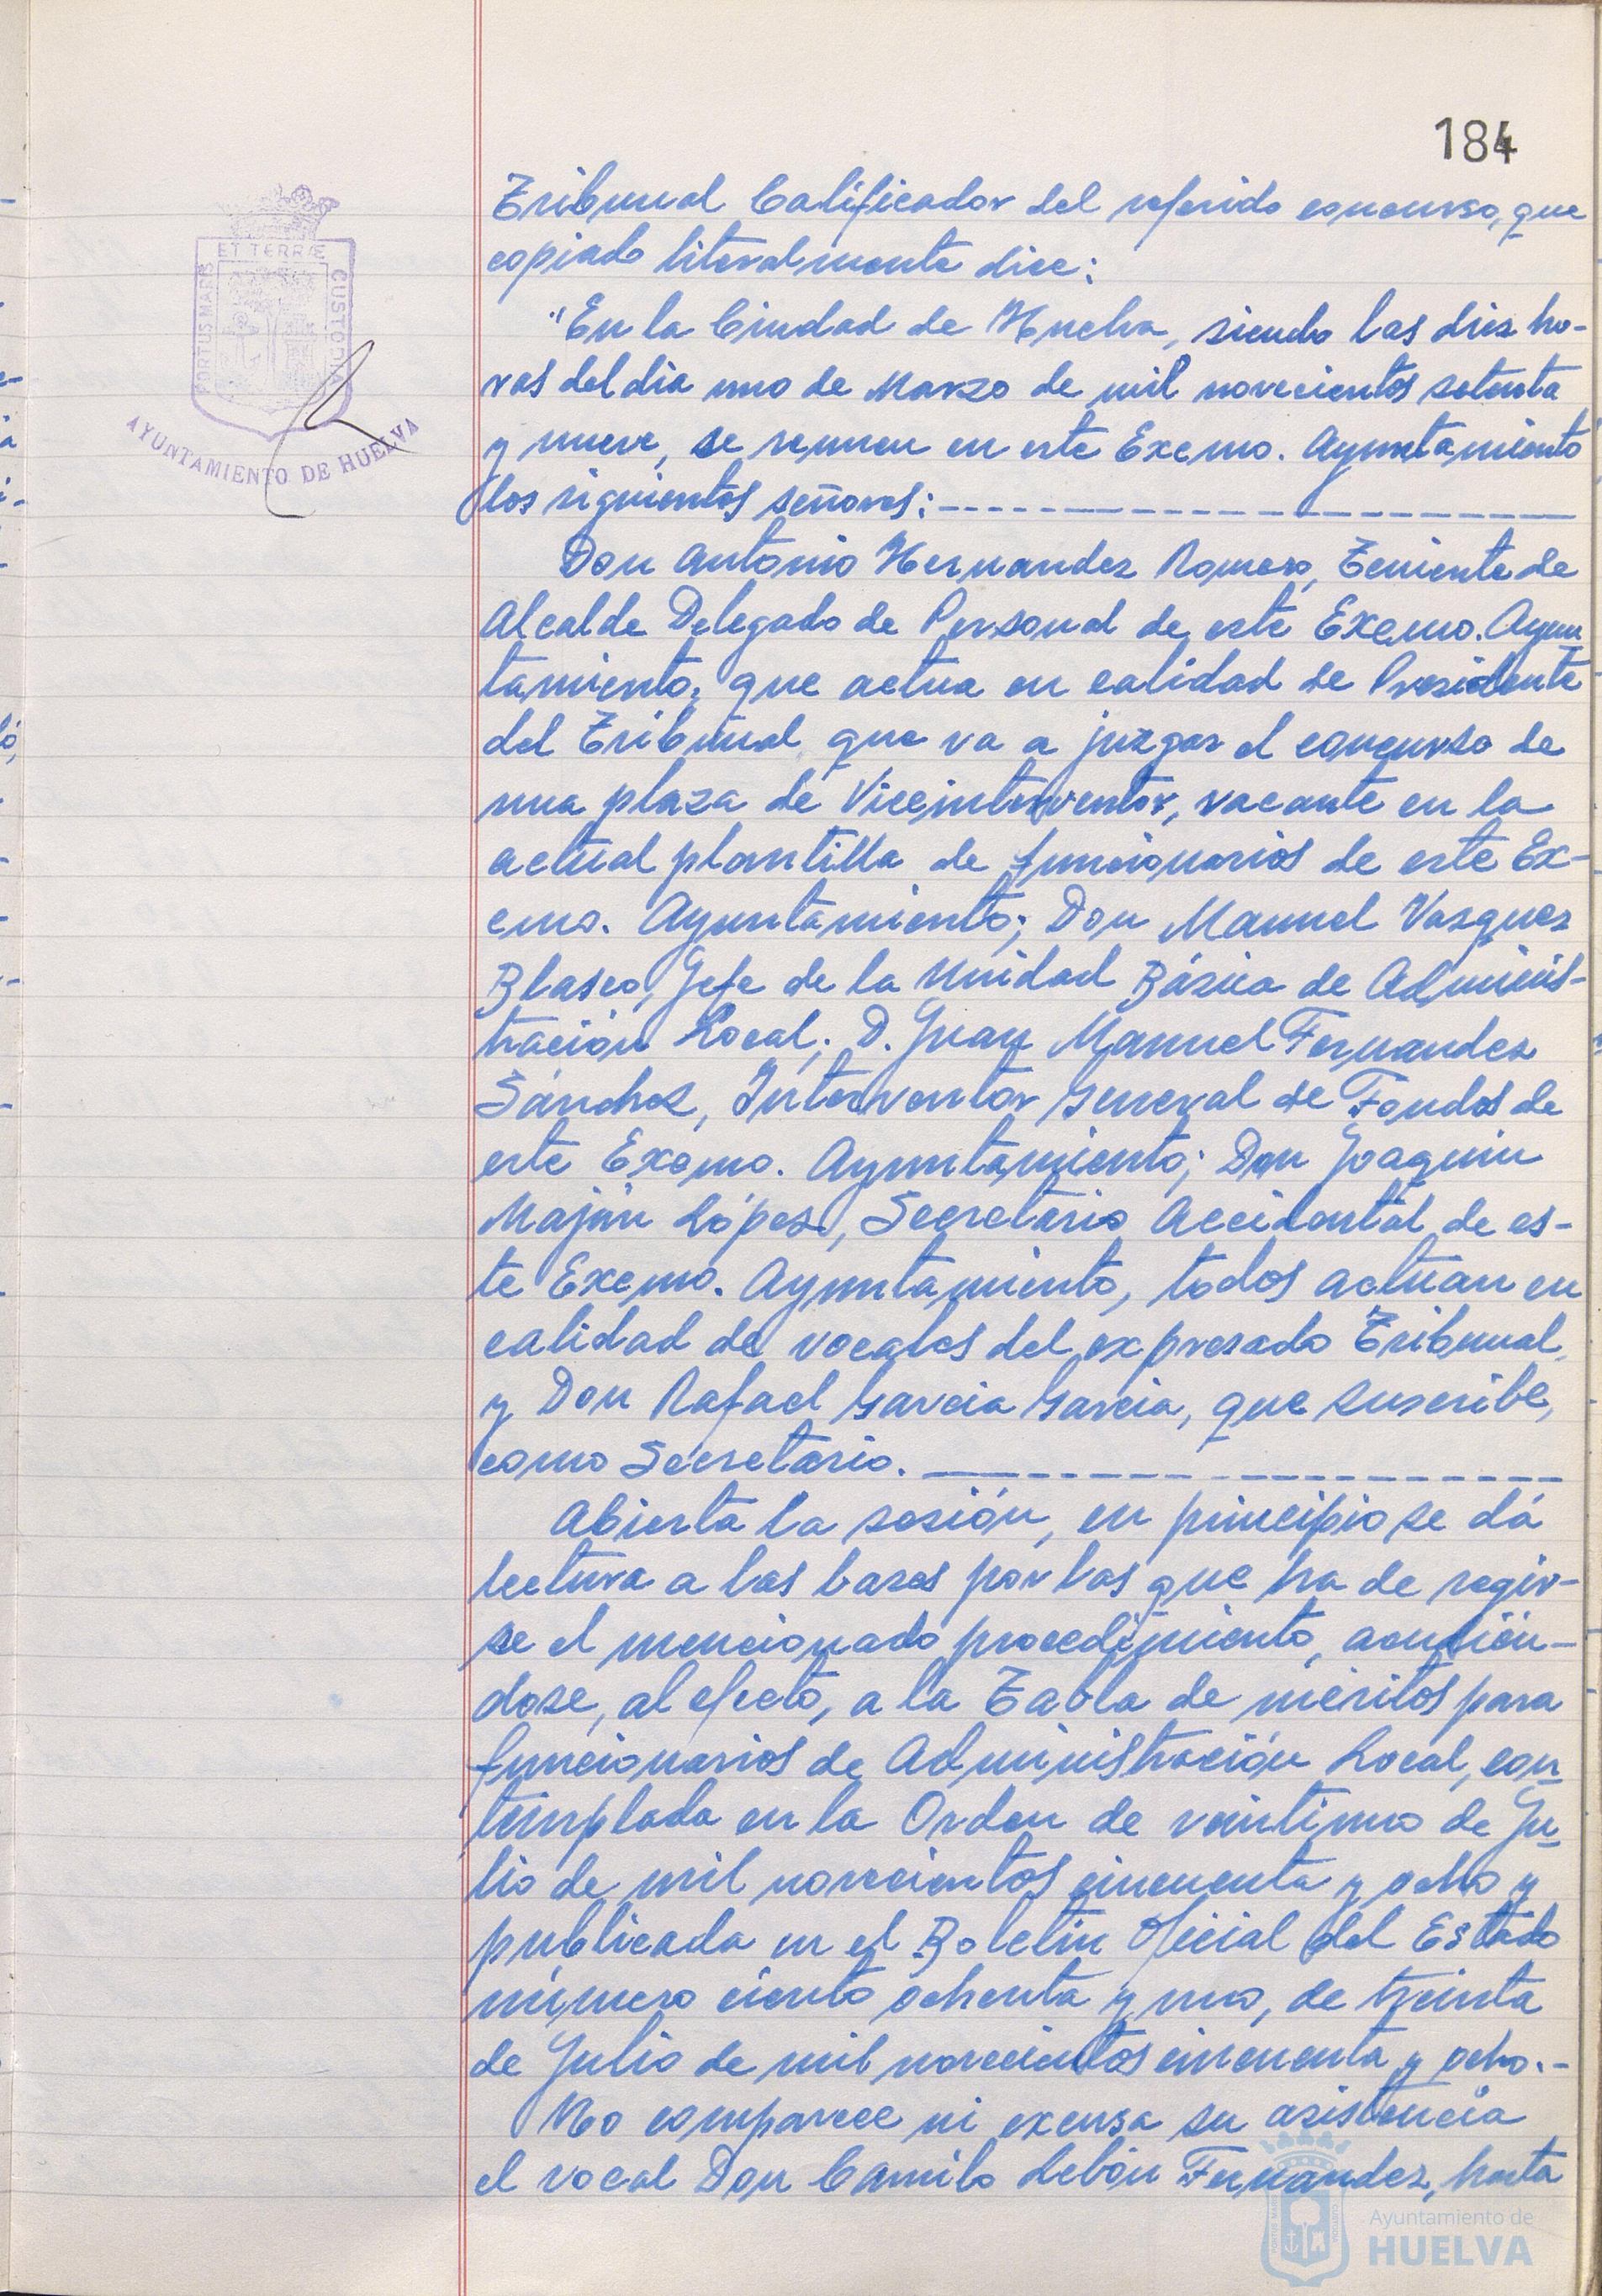 184
Tribunal Calificador del referido concurso, que
copiado literalmente dice:
"En la Ciudad de Huelva, siendo las diez ho-
ras del dia uno de Marzo de mil novecientos setenta
y nueve, se reunen en este Excmo. Ayuntamiento
los siguientes señores:
Don Antonio Hernandez Romero, Teniente de
Alcalde Delegado de Personal de este Excmo. Ayun
tamiento, que actua en calidad de Presidente
del Tribunal que va a juzgar el concurso de
una plaza de Viceinterventor, vacante en la
actual plantilla de funcionarios de este Ex-
cmo. Ayuntamiento; Don Manuel Vazquez
Blasco, Jefe de la Unidad Básica de Adminis-
tración Local; D. Juan Manuel Fernandez
Sánchez, Interventor General de Fondos de
este Excmo. Ayuntamiento; Don Joaquin
Majún López, Secretario Accidental de es-
te Excmo. Ayuntamiento, todos actúan en
calidad de vocales del expresado Tribunal,
y Don Rafael Garcia Garcia, que suscribe,
como Secretario.
Abierta la sesión, en principio se dá
lectura a las bases por las que ha de regir-
se el mencionado procedimiento, acudién-
dose, al efecto, a la Tabla de méritos para
funcionarios de Administración Local, con
templada en la Orden de veintiuno de Ju
lio de mil novecientos cincuenta y ocho y
publicada en el Boletin Oficial del Estado
número ciento ochenta y uno, de treinta
de Julio de mil novecientos cincuenta y ocho.-
No comparece ni excusa su asistencia
el vocal Don Camilo Lebón Fernandez, hasta
PORTUS MARIS
ET TERRÆ
CUSTODIA
AYUNTAMIENTO DE HUELVA
Ayuntamiento de
HUELVA